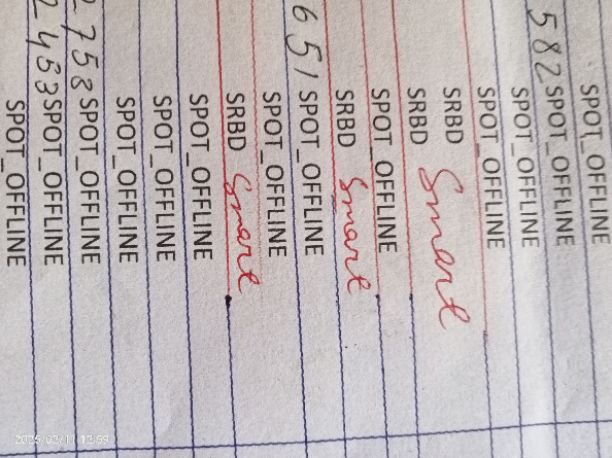 SPOT_OFFLINE
582 SPOT_OFFLINE
SPOT_OFFLINE
SPOT_OFFLINE
SRBD Smart
SRBD
SPOT_OFFLINE
SRBD Smart
651 SPOT_OFFLINE
SPOT_OFFLINE
SRBD Smart
SPOT_OFFLINE
SPOT_OFFLINE
SPOT_OFFLINE
2758 SPOT_OFFLINE
SPOT_OFFLINE
SPOT_OFFLINE
2025/02/11 12:59